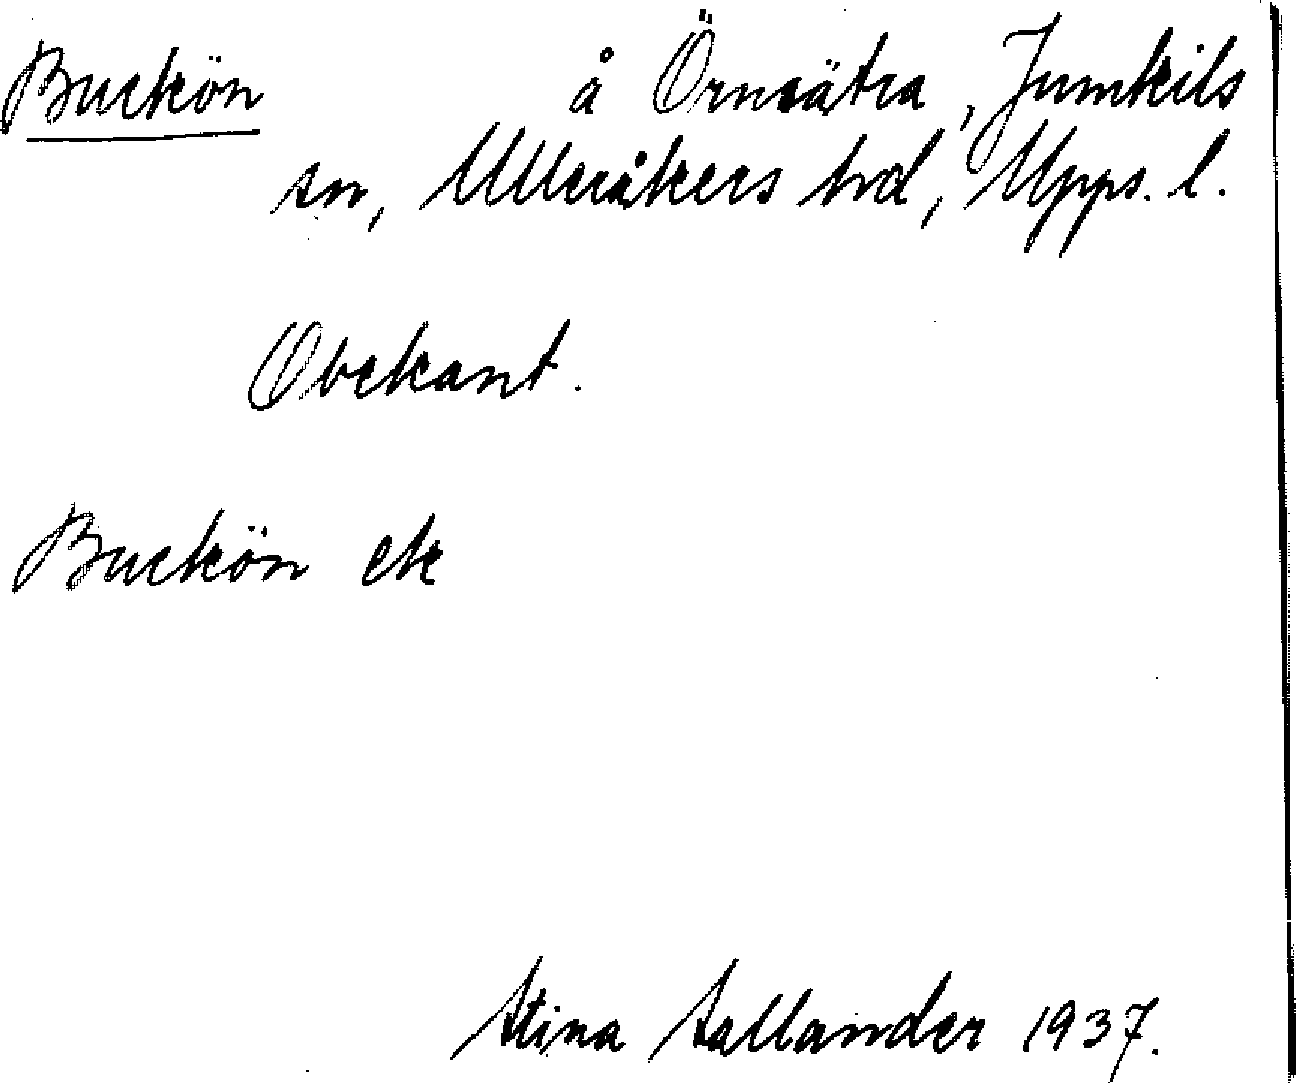 Buckön å Örnsätra, Jumkils
sn, Ulleråkers hd, Upps. l.
Obekant.
Buckön ek
Stina Sallander 1937.